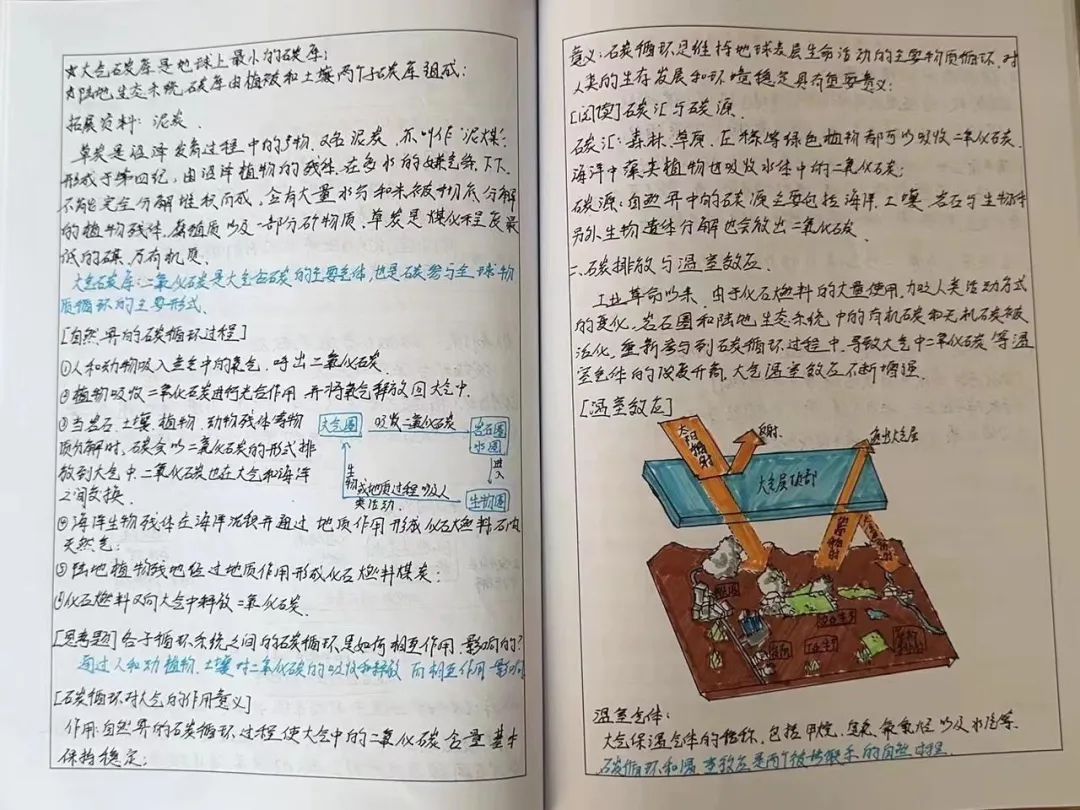 ☆大气碳库是地球上最小的碳库；
☆陆地生态系统碳库由植被和土壤两个子碳库组成；
拓展资料：泥炭.
草炭是沼泽发育过程中的产物.又名泥炭,亦叫作"泥煤".
形成于第四纪,由沼泽植物的残体,在多水的嫌气条件下,
不能完全分解堆积而成,含有大量水分和未被彻底分解
的植物残体.腐植质以及一部分矿物质.草炭是煤化程度最
低的煤.万有机质.
大气碳库：二氧化碳是大气含碳的主要气体,也是碳参与全球物
质循环的主要形式.
[自然界的碳循环过程]
①人和动物吸入空气中的氧气,呼出二氧化碳.
②植物吸收二氧化碳进行光合作用 并将氧气释放回大气中.
③当岩石.土壤.植物.动物残体等物
质分解时,碳会以二氧化碳的形式排
放到大气中.二氧化碳也在大气和海洋
之间交换.
大气圈 吸收二氧化碳 岩石圈
水圈
进入
生物或地质过程以及人
类活动. 生物圈
④海洋生物残体在海洋沉积并通过地质作用形成化石燃料石油
天然气；
⑤陆地植物残地经过地质作用形成化石燃料煤炭；
⑥化石燃料又向大气中释放二氧化碳.
[思考题]各子循环系统之间的碳循环是如何相互作用.影响的?
通过人和动植物.土壤对二氧化碳的吸收和释放 而相互作用.影响的
[碳循环对大气的作用意义]
作用:自然界的碳循环过程使大气中的二氧化碳含量基本
保持稳定；
意义：碳循环是维持地球表层生命活动的主要物质循环.对
人类的生存发展和环境稳定具有重要意义；
[阅读]碳汇与碳源.
碳汇：森林.草原.庄稼等绿色植物都可以吸收二氧化碳.
海洋中藻类植物也吸收水体中的二氧化碳；
碳源：自然界中的碳源主要包括海洋.土壤.岩石与生物体
另外生物遗体分解也会放出二氧化碳.
二.碳排放与温室效应.
工业革命以来 由于化石燃料的大量使用,加以人类活动方式
的变化.岩石圈和陆地生态系统中的有机碳和无机碳被
活化.重新参与到碳循环过程中.导致大气中二氧化碳等温
室气体的浓度升高,大气温室效应不断增强.
[温室效应]
太阳辐射 反射. 逸出大气层
大气层顶部
温室气体：
大气保温气体的统称,包括甲烷.臭氧.氯氟烃以及水汽等.
碳循环和温室效应是两个被称联系的自然过程.